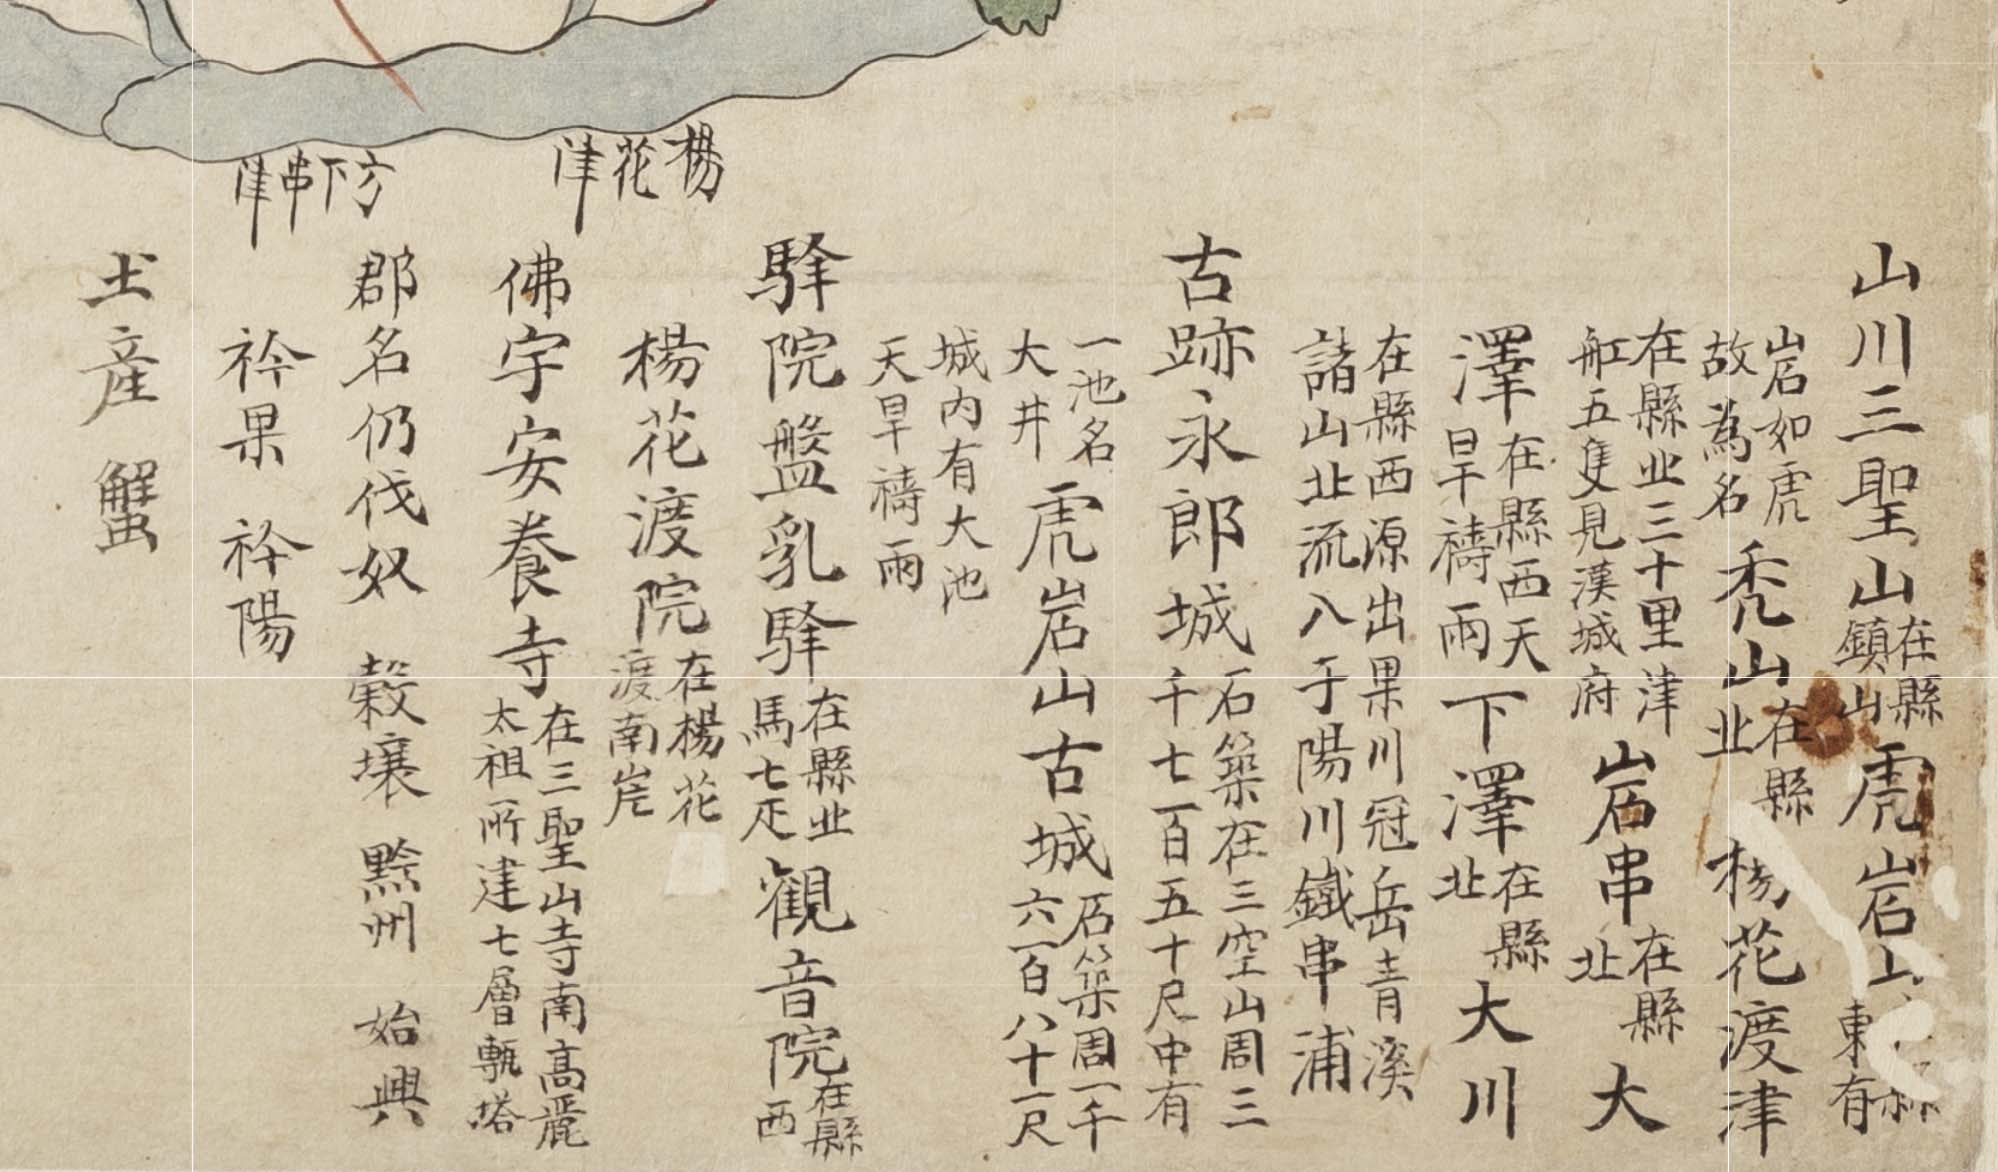 楊花津
方下串津
山川三聖山在縣鎮山虎岩山東有
岩如虎故為名禿山在縣北楊花渡津
在縣北三十里津舡五隻見漢城府岩串在縣北大
澤在縣西天旱禱雨下澤在縣北大川
在縣西源出果川冠岳青溪
諸山北流入于陽川鐵串浦
古跡永郎城石築在三空山周三千七百五十尺中有
一池名大井虎岩山古城石築周一千六百八十一尺
城內有大池
天旱禱雨
駅院盤乳駅在縣北馬七疋観音院在縣西
楊花渡院在楊花渡南岸
佛宇安養寺在三聖山寺南高麗太祖所建七層甎塔
郡名仍伐奴 穀壤 黔州 始興
衿果 衿陽
土産 蟹